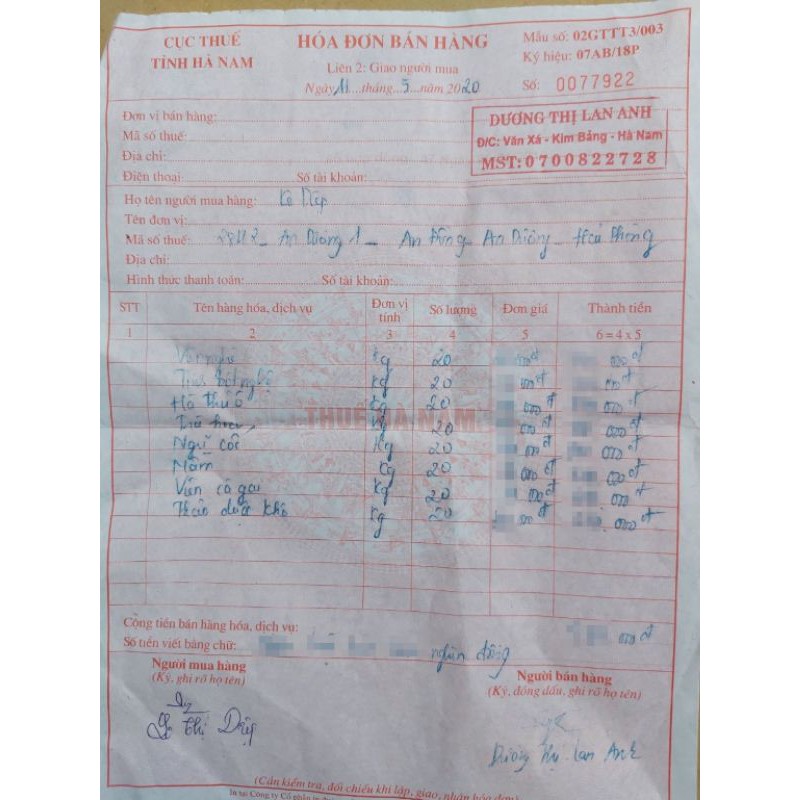 CỤC THUẾ
TỈNH HÀ NAM
HÓA ĐƠN BÁN HÀNG
Liên 2: Giao người mua
Ngày 11 tháng 5 năm 2020
Mẫu số: 02GTTT3/003
Ký hiệu: 07AB/18P
Số: 0077922
DƯƠNG THỊ LAN ANH
Đ/C: Văn Xá - Kim Bảng - Hà Nam
MST: 0700822728
Đơn vị bán hàng:
Mã số thuế:
Địa chỉ:
Điện thoại: Số tài khoản:
Họ tên người mua hàng:
Tên đơn vị:
Mã số thuế: An Dương 1 - An Đồng - An Dương - Hải Phòng
Địa chỉ:
Hình thức thanh toán: Số tài khoản:
STT Tên hàng hóa, dịch vụ Đơn vị tính Số lượng Đơn giá Thành tiền
1 2 3 4 5 6 = 4 x 5
Kg 20 000đ 000đ
Tinh bột nghệ Kg 20 000đ 000đ
Hà thủ ô Kg 20 000đ 000đ
Trà hoa Kg 20 000đ 000đ
Ngũ cốc Kg 20 000đ 000đ
Nấm Kg 20 000đ 000đ
cà gai Kg 20 000đ 000đ
Thảo dược khô Kg 20 000đ 000đ
THUẾ HÀ NAM
Cộng tiền bán hàng hóa, dịch vụ: 000đ
Số tiền viết bằng chữ: nghìn đồng
Người mua hàng
(Ký, ghi rõ họ tên)
Người bán hàng
(Ký, đóng dấu, ghi rõ họ tên)
Thị Diệp
Dương Thị Lan Anh
(Cần kiểm tra, đối chiếu khi lập, giao, nhận hóa đơn)
In tại Công ty Cổ phần